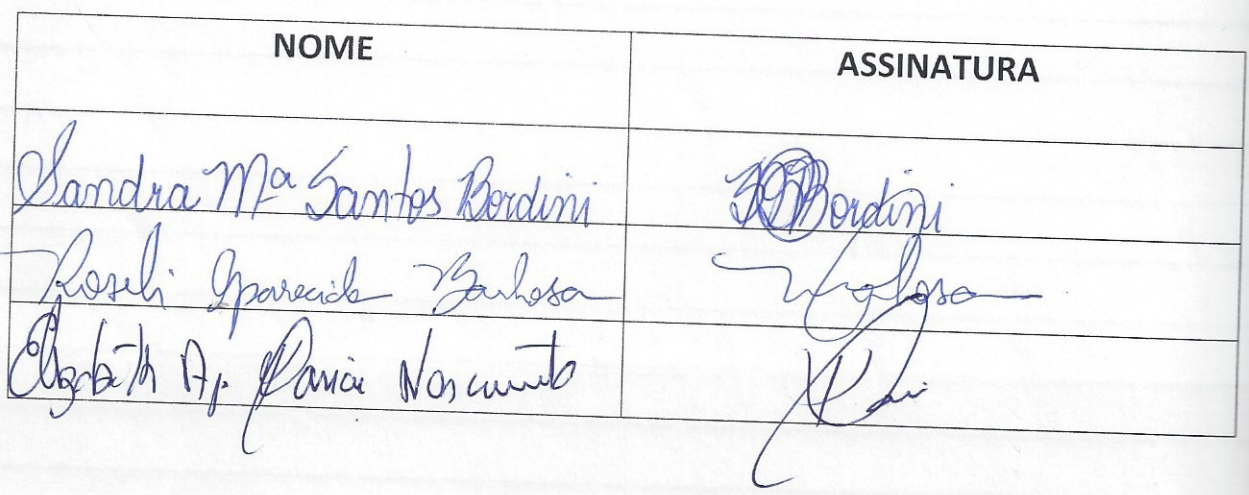 NOME ASSINATURA
Sandra Mª Santos Bordini Bordini
Roseli Aparecida Barbosa
Elizabeth Ap. Nascimento